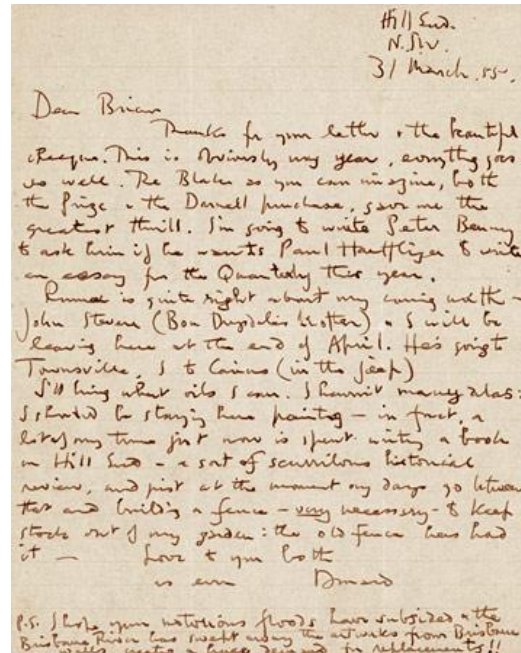 Hill End.
N.S.W.
31 March. 55.
Dear Brian
Thanks for your letter & the beautiful
cheque. This is obviously my year, everything goes
so well. The Blake as you can imagine, both
the Prize & the Darnell purchase, gave me the
greatest thrill. I'm going to write Peter
to ask him if he wants Paul Haefliger to write
an essay for the Quarterly this year.
is quite right about my coming north -
John Stevens (Bon Drysdale's brother) & I will be
leaving here at the end of April. He's going to
Townsville, I to Cairns (in the jeep)
I'll bring what oils I can. I haven't many alas:
I should be staying here painting - in fact, a
lot of my time just now is spent writing a book
on Hill End - a sort of scurrilous historical
review, and just at the moment my days go between
that and building a fence - very necessary - to keep
stock out of my garden: the old fence has had
it - Love to you both
as ever Donald
P.S. I hope your notorious floods have subsided & the
Brisbane River has swept away the artworks from Brisbane
walls a huge demand for replacements!!